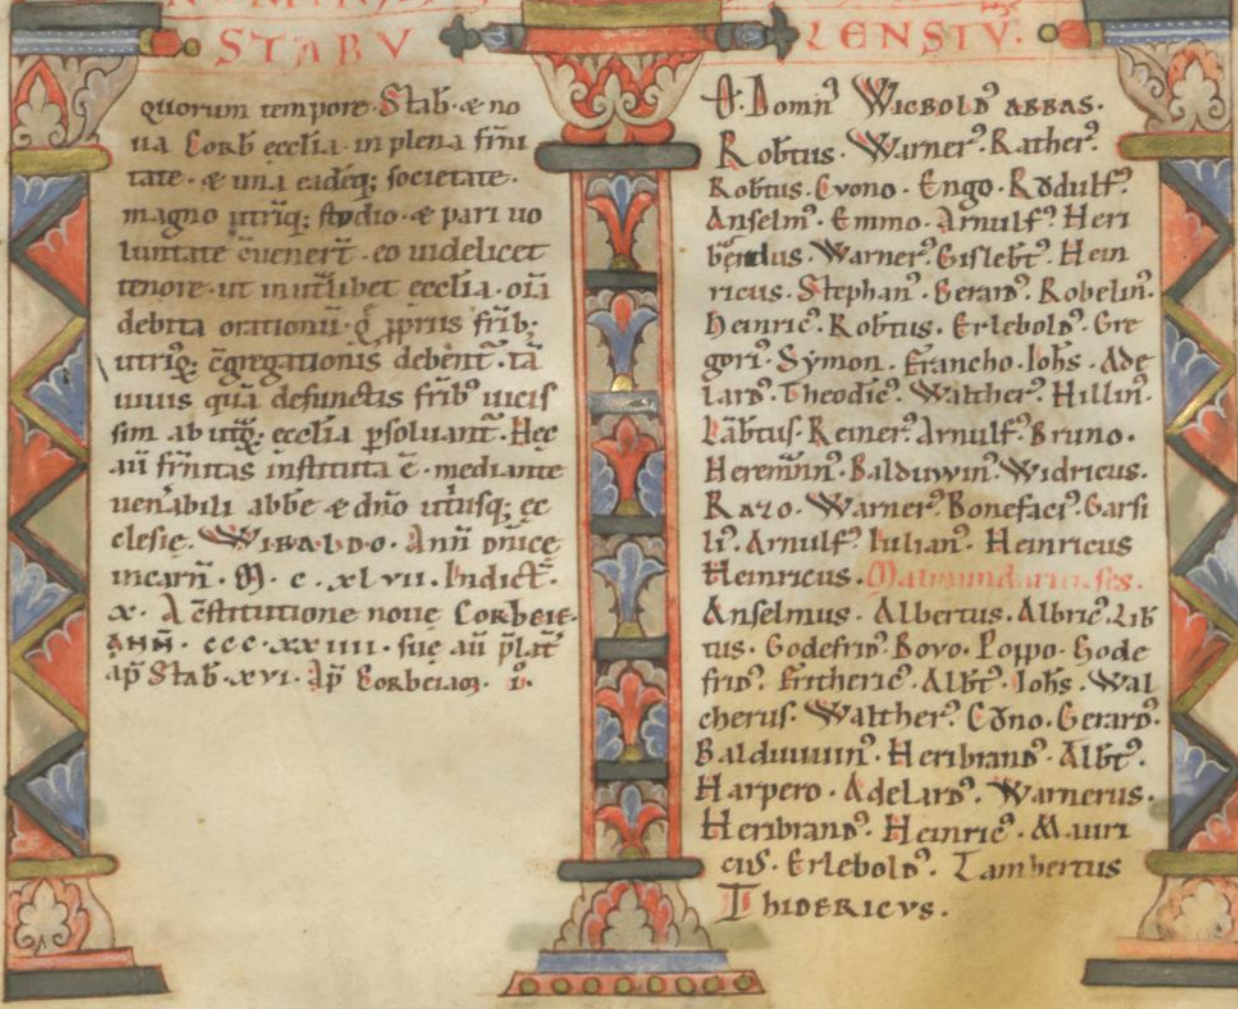 STABV LENSIV̄.
quorum tempore. Stab̄. & no
ua Corb̄ ecclīa. in plena frn̄i
tate. & una eadēq; societate.
magno utriq; studio. & pari uo
luntate c̄uenert̄. eo uidelicet
tenore. ut in utlibet ecclīa. oīa
debita orationū. q̄ pprus frīb;
utriq; c̄gregationis debent̄. tā
uiuis quā defunctis frib⁹ uicis
sim ab utq; ecclīa psoluant̄. Hec
aū frn̄itas instituta ē. mediante
uenabili abbe & dn̄o utusq; ec
clesię. WIBALDO. Ann̄ dn̄icę
incarn̄. M. c. xl vii. Indict̄.
x. A c̄stitutione noue Corbeię.
ANN̄. ccc. xx iiii. suę aū p̄lat̄
ap̄ Stab̄. xvi. Ap̄ Corbeiam. i.
Domn̄ WICBOLD⁹ ABBAS.
Rob̄tus. Warner⁹. Rather⁹.
Rob̄tus. Cvono. Engo. Rodulf⁹.
Anselm⁹. Emmo. Arnulf⁹. Heri
Warner⁹. Gislebt̄⁹. Hein
ricus. Stephan⁹. Gerard⁹. Robelin⁹.
Heinric⁹. Rob̄tus. Erlebold⁹. Gre
gori⁹. Symon. Francho. Ioh̄s. Ade
lard⁹. Theodric⁹. Walther⁹. Hillin⁹.
Lābtus. Reiner⁹. Arnulf⁹. Bruno.
Heremān⁹. Balduwin⁹. Widricus.
Razo. Warner⁹. Bonefaci⁹. Garsi
li⁹. Arnulf⁹. Iulian⁹. Heinricus
Heinricus. Malmundarienses.
Anselmus. Albertus. Albric⁹. Lib̄
tus. Godefrid⁹. Bovo. Poppo. Gode
frid⁹. Fritheric⁹. Albt̄⁹. Ioh̄s. Wal
cherus. Walther⁹. Cono. Gerard⁹.
Balduuuin⁹. Heribrand⁹. Albt̄⁹.
Harpero. Adelard⁹. Warnerus.
Heribrand⁹. Heinric⁹. Mauri
cius. Erlebold⁹. Lambertus
ThIDERICVS.